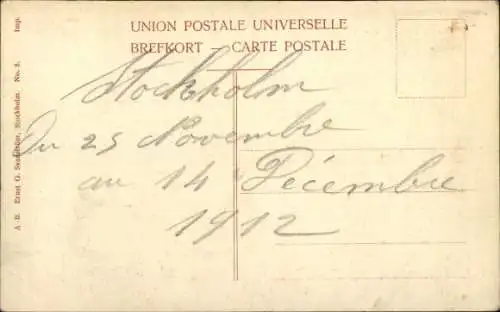 UNION POSTALE UNIVERSELLE
BREFKORT — CARTE POSTALE
Stockholm
Du 25 Novembre
au 14 Décembre
1912
A.-B. Ernst G. Svanström, Stockholm. No. 3. Imp.